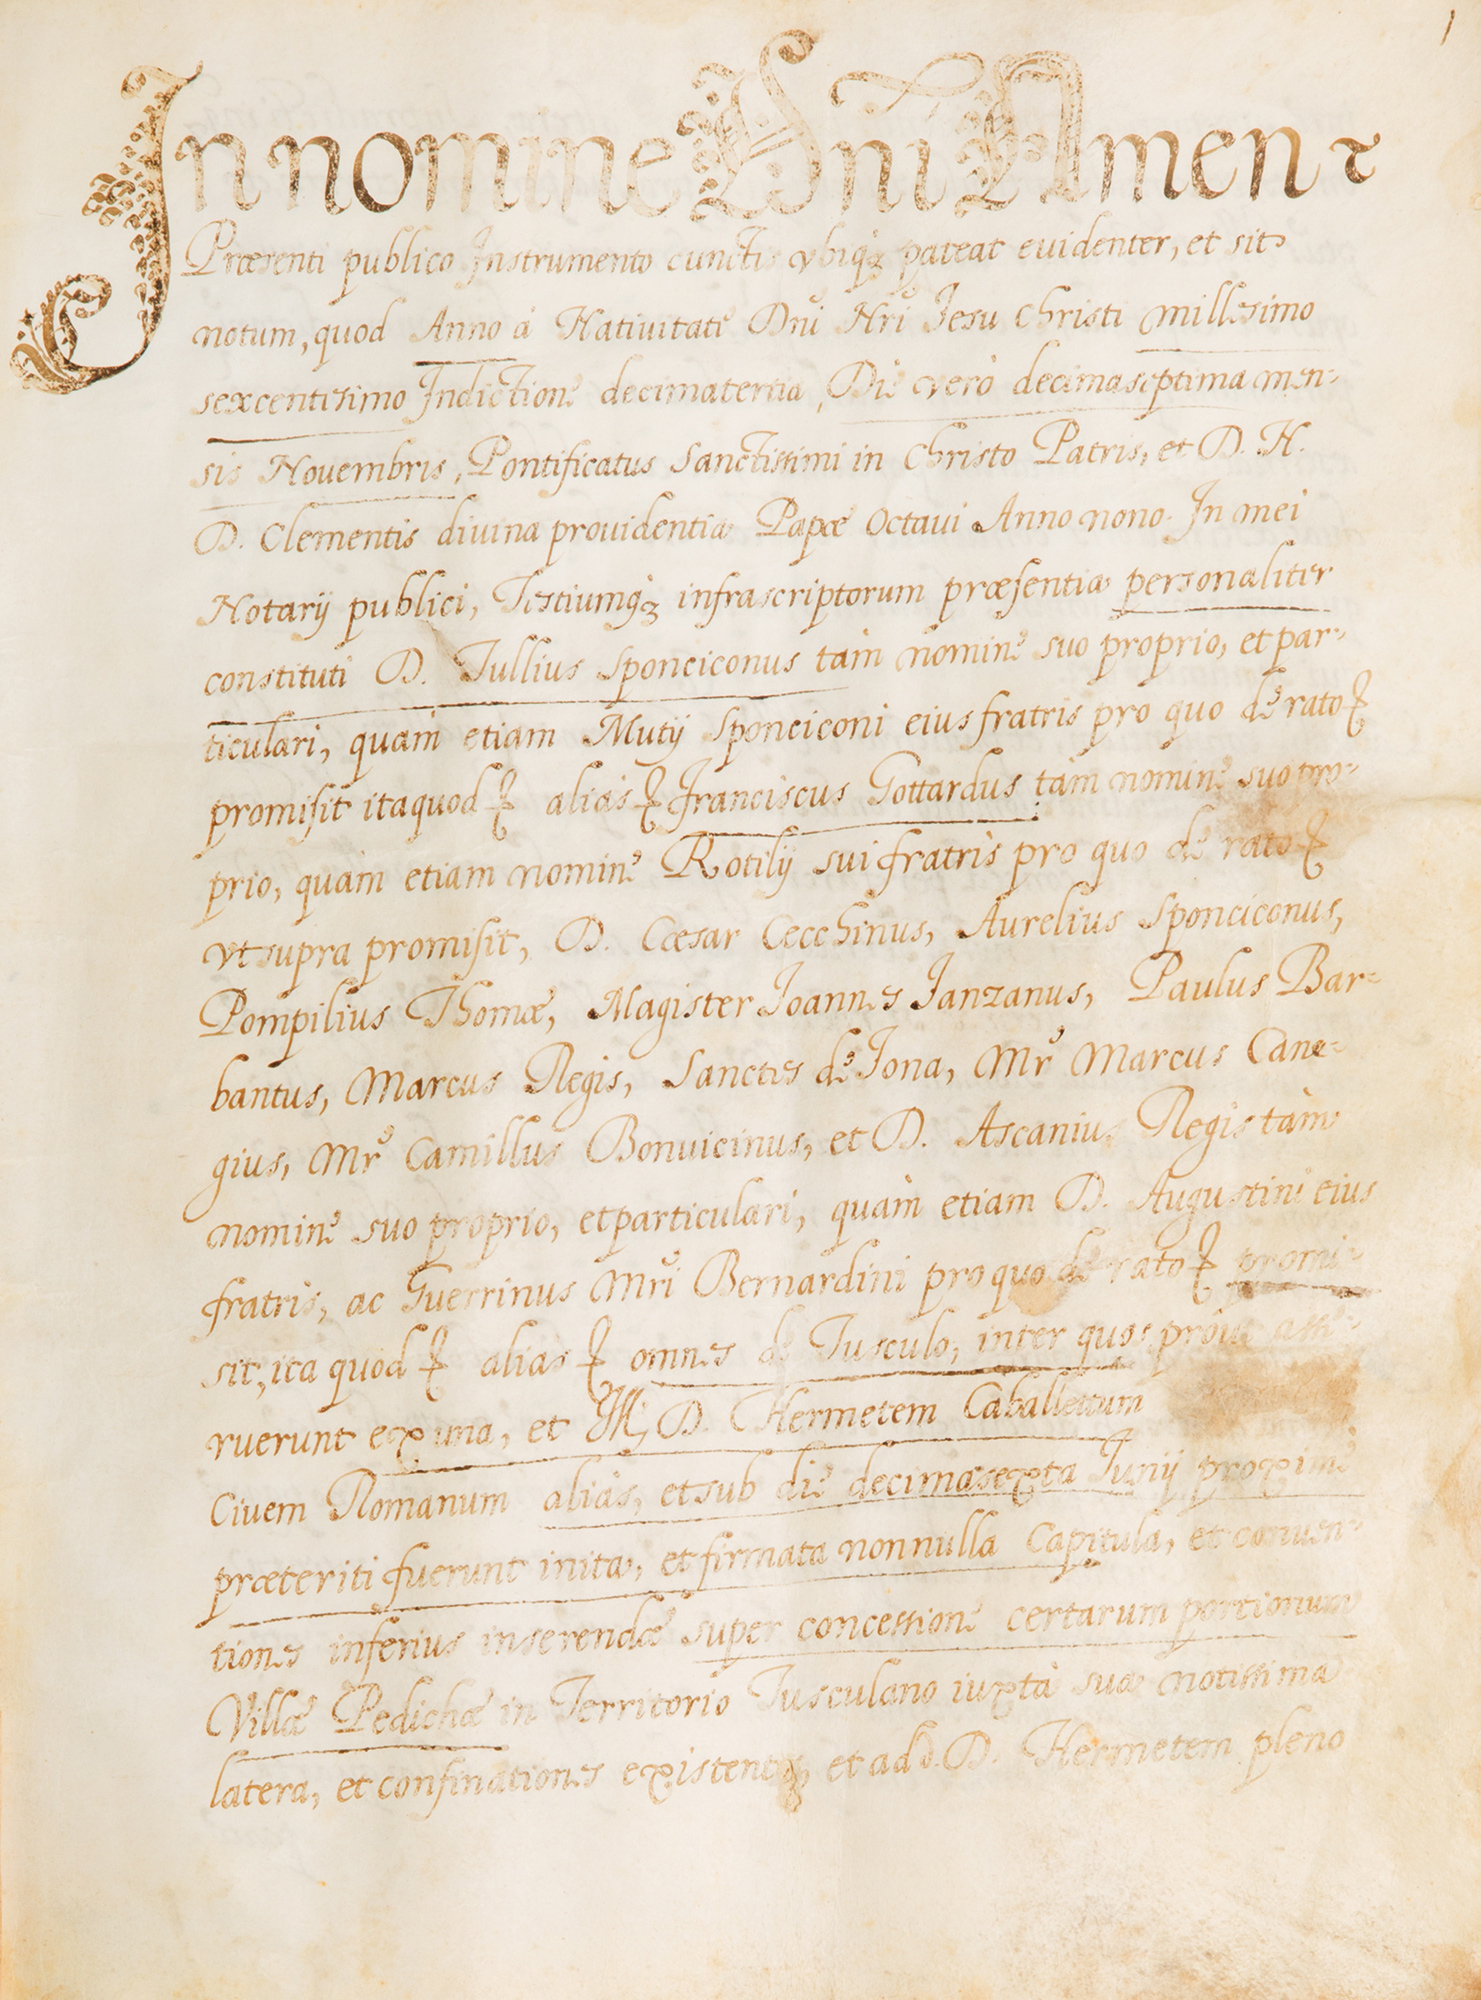 1
In nomine Dñi Amen
Præsenti publico Instrumento cunctis ubiq; pateat euidenter, et sit
notum, quod Anno à Natiuitate Dñi Nri Iesu Christi millesimo
sexcentesimo Indictione decimatertia, Die verò decimaseptima men-
sis Nouembris, Pontificatus Sanctissimi in Christo Patris, et D. N.
D. Clementis diuina prouidentia Papæ Octaui Anno nono. In mei
Notarij publici, Testiumq; infrascriptorum præsentia personaliter
constituti D. Tullius Sponciconus tàm nomine suo proprio, et par-
ticulari, quàm etiam Mutij Sponciconi eius fratris pro quo de rato &
promisit itaquod & alias & Franciscus Gottardus tàm nomine suo pro-
prio, quàm etiam nomine Rotilij sui fratris pro quo de rato &
vt supra promisit, D. Cæsar Cecchinus, Aurelius Sponciconus,
Pompilius Thomæ, Magister Ioannes Ianzanus, Paulus Bar-
bantus, Marcus Regis, Sanctes de Iona, Mr Marcus Cane-
gius, Mr Camillus Bonuicinus, et D. Ascanius Regis tàm
nomine suo proprio, et particulari, quàm etiam D. Augustini eius
fratris, ac Guerrinus Mri Bernardini pro quo de rato & promi-
sit, ita quod & alias & omnes de Tusculo, inter quos prout asse-
ruerunt ex una, et Ill; D. Hermetem Caballettum
Ciuem Romanum aliàs, et sub die decimasexta Iunij proxime
præteriti fuerunt inita, et firmata nonnulla Capitula, et conuen-
tiones inferius inserendæ super concessione certarum portionum
Villæ Pedichæ in Territorio Tusculano iuxta sua notissima
latera, et confinationes existent; et ad d. D. Hermetem pleno